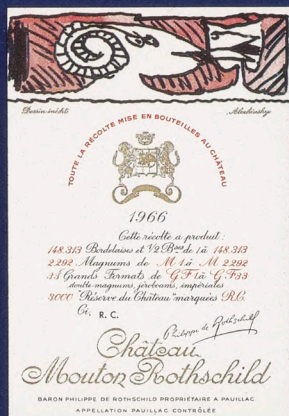 Dessin inédit
Alechinsky
TOUTE LA RÉCOLTE MISE EN BOUTEILLES AU CHÂTEAU
1966
Cette récolte a produit :
148.313 Bordelaises et 1/2 Bses de 1 à 148.313
2.292 Magnums de M 1 à M 2.292
33 Grands Formats de G F 1 à G F 33
double-magnums, jéroboams, impériales
3000 "Réserve du Château" marquées R.C.
Ci, R. C.
Philippe de Rothschild
Château
Mouton Rothschild
BARON PHILIPPE DE ROTHSCHILD PROPRIÉTAIRE A PAUILLAC
APPELLATION PAUILLAC CONTRÔLÉE